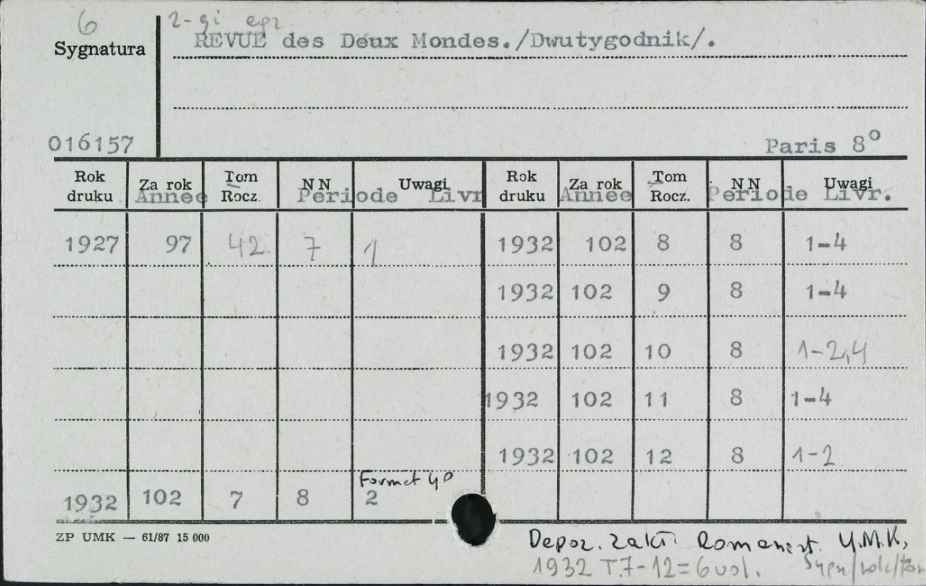 6 2-gi egz
Sygnatura REVUE des Deux Mondes./Dwutygodnik/.
016157 Paris 8°
Rok druku Za rok Année Tom Rocz. NN Periode Uwagi Livr Rok druku Za rok Année Tom Rocz. NN Periode Uwagi Livr.
1927 97 42 7 1 1932 102 8 8 1-4
1932 102 9 8 1-4
1932 102 10 8 1-2,4
1932 102 11 8 1-4
1932 102 12 8 1-2
Format 4°
1932 102 7 8 2
ZP UMK — 61/87 15 000
Depoz. Zakł. Romanist. U.M.K.
1932 T.7-12=6 vol. Sygn/rok/tom